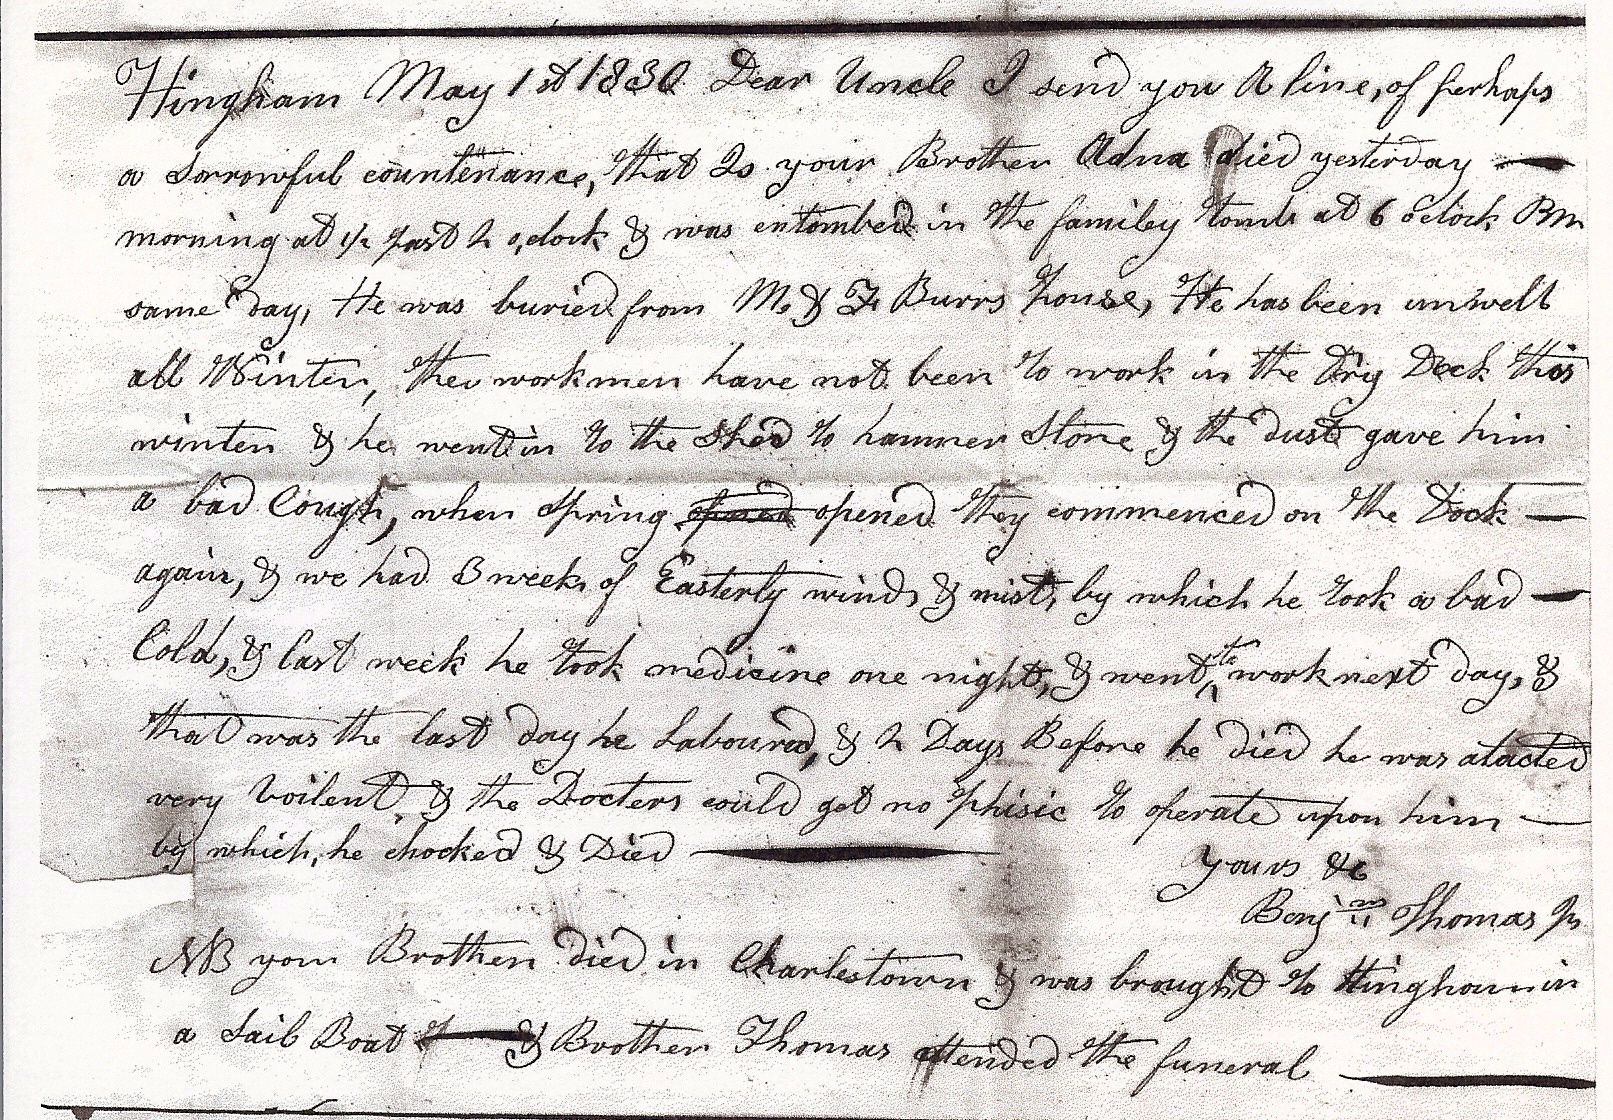 Hingham May 1st 1830 Dear Uncle I send you A line, of perhaps
a Sorrowful countenance, that Is your Brother Adna died yesterday —
morning at ½ past 2 o,clock & was entombed in the familey tomb at 6 oclock PM
same day, He was buried from M. & F. Burrs house, He has been unwell
all Winter, the workmen have not been to work in the Dry Dock this
winter & he went in to the Shed to hammer Stone & the dust gave him
a bad Cough, when Spring opned opened they commenced on the Dock —
again, & we had 3 weeks of Easterly winds & mist, by which he took a bad —
Cold, & last week he took medicine one night, & went to work next day, &
that was the last day he Laboured, & 2 Days Before he died he was atacted
very voilent & the Docters could get no phisic to operate upon him —
by which, he chocked & Died —
Yours &c
Benjmn Thomas Jr
NB your Brother died in Charlestown & was brought to Hingham in
a Sail Boat & Brother Thomas attended the funeral —